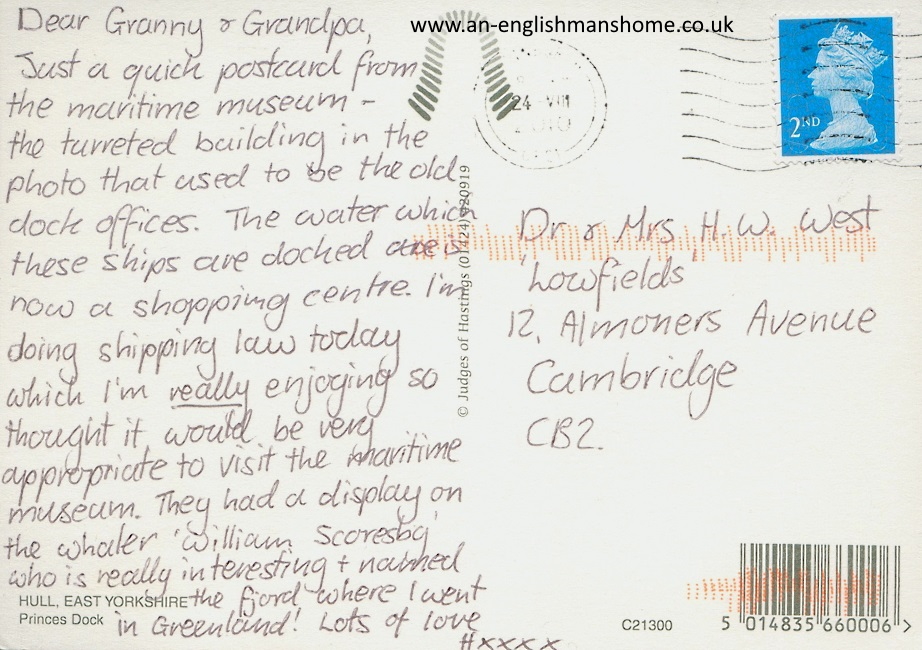 www.an-englishmanshome.co.uk
Dear Granny & Grandpa,
Just a quick postcard from
the maritime museum -
the turreted building in the
photo that used to be the old
dock offices. The water which
these ships are docked is
now a shopping centre. I'm
doing shipping law today
which I'm really enjoying so
thought it would be very
appropriate to visit the maritime
museum. They had a display on
the whaler 'William Scoresby'
who is really interesting + named
the fjord where I went
in Greenland! Lots of love
H x x x x
HULL, EAST YORKSHIRE
Princes Dock
© Judges of Hastings (01424) 420919
24 VIII
2010
2ND
Dr & Mrs H.W. West
'Lowfields'
12, Almoners Avenue
Cambridge
CB2.
C21300
5 014835 660006 >